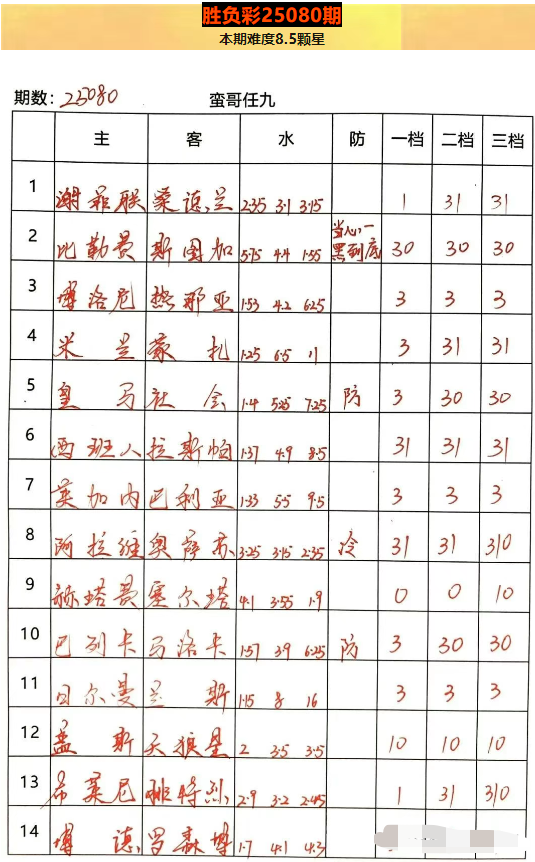 胜负彩25080期
本期难度8.5颗星
期数: 25080 蛮哥任九
主 客 水 防 一档 二档 三档
1 谢菲联 桑德兰 2.35 3.1 3.15 1 31 31
2 比勒费 斯图加 5.75 4.4 1.55 当心,一黑到底 30 30 30
3 博洛尼 热那亚 1.53 4.2 6.25 3 3 3
4 米兰 蒙扎 1.25 6.5 11 3 31 31
5 皇马 社会 1.4 5.25 7.25 防 3 30 30
6 西班人 拉斯帕 1.37 4.9 8.5 31 31 31
7 莫加内 巴利亚 1.33 5.5 9.5 3 3 3
8 阿拉维 奥萨苏 3.25 3.15 2.35 冷 31 31 310
9 赫塔费 塞尔塔 4.1 3.55 1.9 0 0 10
10 巴列卡 马洛卡 1.57 3.9 6.25 防 3 30 30
11 日尔曼 兰斯 1.15 8 16 3 3 3
12 盖斯 天狼星 2 3.5 3.5 10 10 10
13 希莱尼 桃特烈 2.9 3.2 2.45 1 31 310
14 博德 罗森博 1.7 4.1 4.3